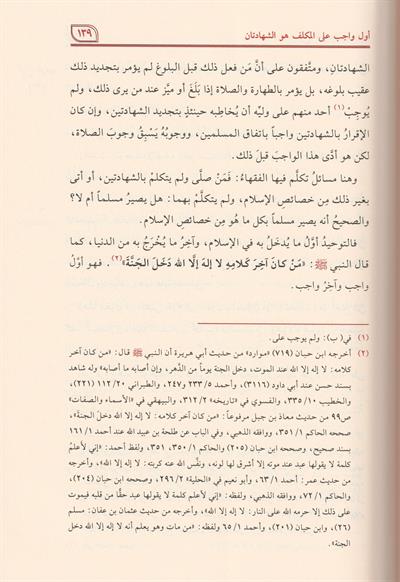 أول واجب على المكلف هو الشهادتان
١٣٩
الشهادتانِ، ومتَّفقون على أنَّ مَن فعل ذلك قبلَ البلوغ لم يؤمر بتجديد ذلك
عقيب بلوغه، بل يؤمر بالطهارة والصلاة إذا بَلَغَ أو ميَّز عند من يرى ذلك، ولم
يُوجِبْ(١) أحد منهم على وليِّه أن يُخاطِبه حينئذٍ بتجديد الشهادتين، وإن كان
الإقرارُ بالشهادتين واجباً باتفاق المسلمين، ووجوبُهُ يَسبِقُ وجوبَ الصلاة،
لكن هو أدَّى هذا الواجبَ قبلَ ذلك.
وهنا مسائلُ تكلَّم فيها الفقهاءُ: فَمَنْ صلَّى ولم يتكلمْ بالشهادتين، أو أتى
بغير ذلك مِن خصائصِ الإسلام، ولم يتكلَّمْ بهما: هل يصيرُ مسلماً أم لا؟
والصحيحُ أنه يصير مسلماً بكل ما هُو مِن خصائص الإسلام.
فالتوحيدُ أوَّلُ ما يُدخَلُ به في الإسلام، وآخِرُ ما يُخْرَجُ به من الدنيا، كما
قال النبي ﷺ: «مَنْ كانَ آخِرَ كَلامِهِ لا إلهَ إلَّا الله دَخَلَ الجَنَّةَ»(٢). فهو أوَّلُ
واجب وآخِرُ واجب.
(١) في (ب): ولم يوجب على.
(٢) أخرجه ابن حبان (٧١٩) «موارد» من حديث أبي هريرة أن النبي ﷺ قال: «من كان آخر
كلامه: لا إله إلا الله عند الموت، دخل الجنة يوماً من الدَّهر، وإن أصابه ما أصابه» وله شاهد
بسند حسن عند أبي داود (٣١١٦)، وأحمد ٢٣٣/٥ و٢٤٧، والطبراني ٢٠/ ١١٢ (٢٢١)،
والخطيب ٣٣٥/١٠، والفسوي في «تاريخه» ٣١٢/٢، والبيهقي في «الأسماء والصفات»
ص٩٩ من حديث معاذ بن جبل مرفوعاً: «من كان آخر كلامه: لا إله إلا الله دخل الجنة»،
صححه الحاكم ٣٥١/١، ووافقه الذهبي، وفي الباب عن طلحة بن عبيد الله عند أحمد ١٦١/١
بسند صحيح، وصححه ابن حبان (٢٠٥) والحاكم ٣٥٠/١، ٣٥١، ولفظ أحمد: «إني لأعلمُ
كلمة لا يقولها عبد عند موته إلا أشرق لها لونه، ونفَّس الله عنه كربته: لا إله إلا الله»، وأخرجه
من حديث عمر: أحمد ٦٣/١، وأبو نعيم في «الحلية» ٢٩٦/٢، وصححه ابن حبان (٢٠٤)،
والحاكم ٧٢/١، ووافقه الذهبي، ولفظه: «إني لأعلم كلمة لا يقولها عبد حقًّا من قلبه فيموت
على ذلك إلا حرمه الله على النار: لا إله إلا الله»، وأخرجه من حديث عثمان بن عفان: مسلم
(٢٦)، وابن حبان (٢٠١)، وأحمد ٦٥/١ ولفظه: «من مات وهو يعلم أنه لا إله إلا الله دخل
الجنة».